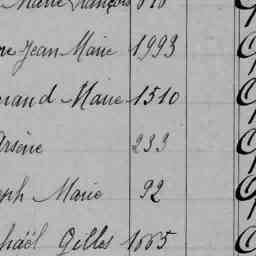 Marie François 818
re Jean Marie 1993
nand Marie 1510
Arsène 233
eph Marie 92
haël Gilles 1065